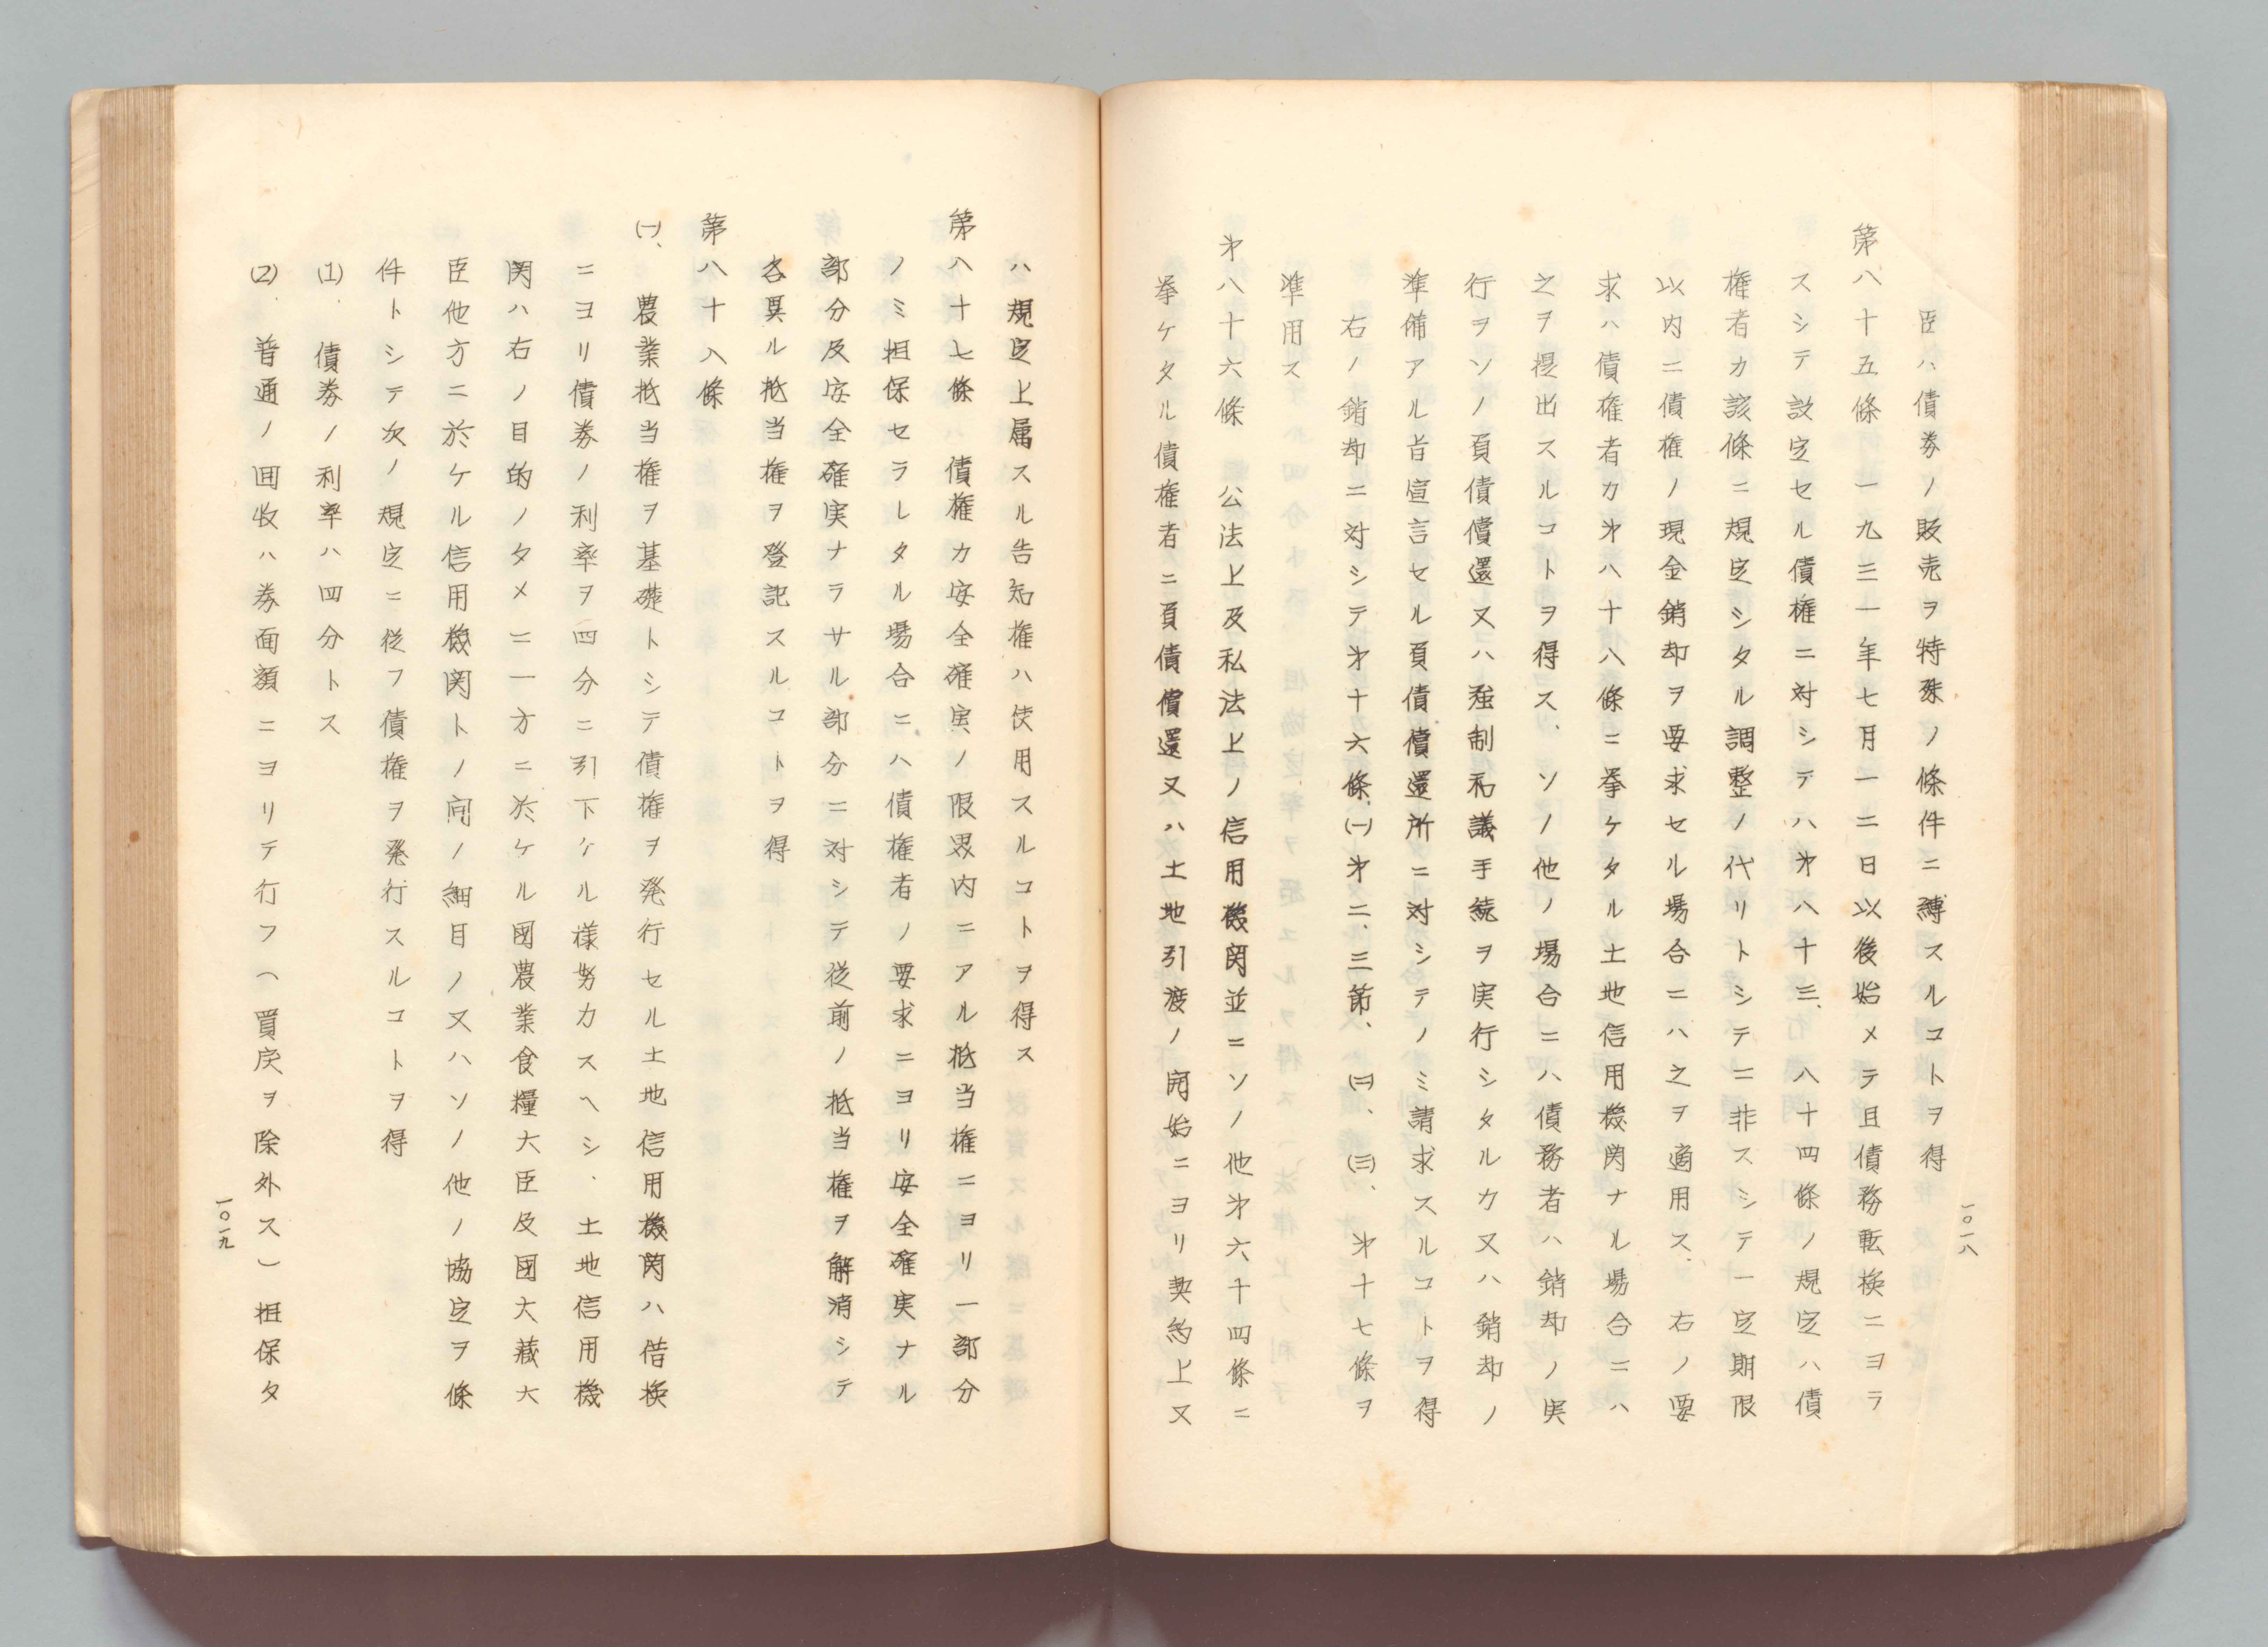 臣ハ債券ノ販売ヲ特殊ノ條件ニ縛スルコトヲ得
第八十五條　一九三一年七月一二日以後始メテ且債務転換ニヨラ
スシテ設定セル債権ニ対シテハ㐧八十三、八十四條ノ規定ハ債
権者カ該條ニ規定シタル調整ノ代リトシテニ非スシテ一定期限
以内ニ債権ノ現金銷却ヲ要求セル場合ニハ之ヲ適用ス、右ノ要
求ハ債権者カ㐧八十八條ニ挙ケタル土地信用機関ナル場合ニハ
之ヲ提出スルコトヲ得ス、ソノ他ノ場合ニハ債務者ハ銷却ノ実
行ヲソノ負債償還又ハ強制和議手続ヲ実行シタルカ又ハ銷却ノ
準備アル旨宣言セル負債償還所ニ対シテノミ請求スルコトヲ得
右ノ銷却ニ対シテ㐧十六條、㈠㐧二、三節、㈡、㈢、㐧十七條ヲ
準用ス
㐧八十六條　公法上及私法上ノ信用機関並ニソノ他㐧六十四條ニ
挙ケタル債権者ニ負債償還又ハ土地引渡ノ開始ニヨリ契約上又
一〇一八
ハ規定上属スル告知権ハ使用スルコトヲ得ス
第八十七條　債権カ安全確実ノ限界内ニアル抵当権ニヨリ一部分
ノミ担保セラレタル場合ニハ債権者ノ要求ニヨリ安全確実ナル
部分及安全確実ナラサル部分ニ対シテ従前ノ抵当権ヲ解消シテ
各異ル抵当権ヲ登記スルコトヲ得
第八十八條
㈠、農業抵当権ヲ基礎トシテ債権ヲ発行セル土地信用機関ハ借換
ニヨリ債券ノ利率ヲ四分ニ引下ケル様努力スヘシ、土地信用機
関ハ右ノ目的ノタメニ一方ニ於ケル國農業食糧大臣及國大藏大
臣他方ニ於ケル信用機関トノ間ノ細目ノ又ハソノ他ノ協定ヲ條
件トシテ次ノ規定ニ従フ債権ヲ発行スルコトヲ得
(1)、債券ノ利率ハ四分トス
(2)、普通ノ回收ハ券面額ニヨリテ行フ（買戻ヲ除外ス）担保タ
一〇一九